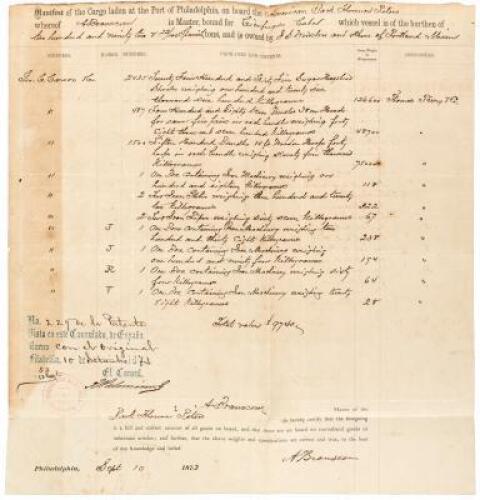 Manifest of the Cargo laden at the Port of Philadelphia, on board the American Bark Thomas
whereof A Branscom is Master, bound for Cienfuegos Cuba which vessel is of the burthen of
hundred and ninety tons, and is owned by of Portland Maine
MARKS NUMBERS
Geo. C. Carson &Co 2435 Twenty four Hundred and thirty five Sugar Hogshead
Shooks weighing one hundred and twenty six
thousand six hundred Killogrames 126600 Thomas Terry &Co
" 487 Four Hundred and Eighty seven Heads
for same five pair in each bundle weighing forty
Eight thousand seven hundred Killogrames 48700 "
" 1500 Fifteen Hundred Bundles Wooden Hoops forty
hoops in each bundle weighing seventy five thousand
Killogrames 75000 "
" 1 One Box containing Iron Machinery weighing one
hundred and eighteen Killogrames 118 "
" 2 Two Iron weighing three hundred and twenty
two Killogrames 322 "
" 2 Two Iron Pipes weighing Sixty seven Killogrames 67 "
" J 1 One Box containing Iron Machinery weighing two
hundred and thirty Eight Killogrames 238 "
" J 1 One Box containing Iron Machinery weighing
one hundred and ninety four Killogrames 194 "
" R 1 One Box containing Iron Machinery weighing sixty
four Killogrames 64 "
" T 1 One Box containing Iron Machinery weighing twenty
Eight Killogrames 28 "
Total value $ 9740
No. 229 de la Patente
Visto en este Consulado de España
con el original
Filadelfia, 10 de Setiembre 187
El Consul,
A Branscom Master of the
Bark Thomas do hereby certify that the foregoing
is a full and correct account of all goods on board, and that there are on board no contraband goods
and further, that the above weights and are correct and true, to the best
of my knowledge and belief.
A Branscom
Philadelphia, Sept 10 1873